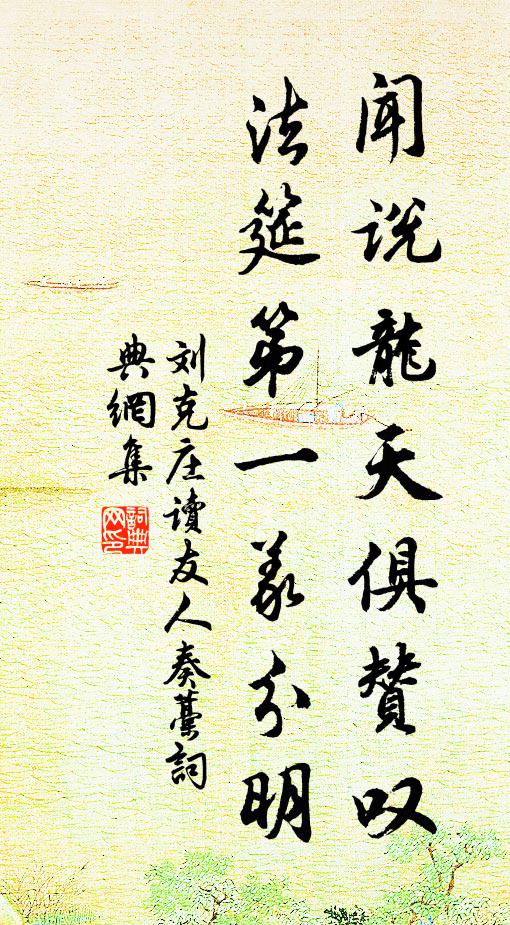 闻说龍天俱赞叹
法筵第一义分明
刘克庄讀友人奏藁詞
典網集
詞典网印